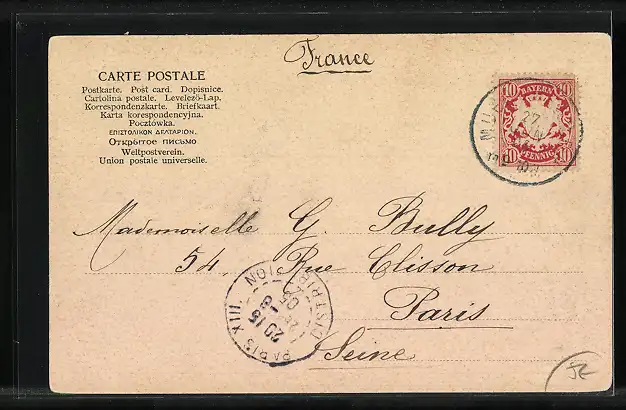 France
CARTE POSTALE
Postkarte. Post card. Dopisnice.
Cartolina postale. Levelező-Lap.
Korrespondenzkarte. Briefkaart.
Karta korespondencyjna.
Pocztówka.
ΕΠΙΣΤΟΛΙΚΟΝ ΔΕΛΤΑΡΙΟΝ.
Открытое письмо
Weltpostverein.
Union postale universelle.
10 BAYERN 10
10 PFENNIG 10
27
Mademoiselle G. Bully
54, Rue Clisson
Paris
Seine
PARIS XIII. DISTRIBUTION
20 15